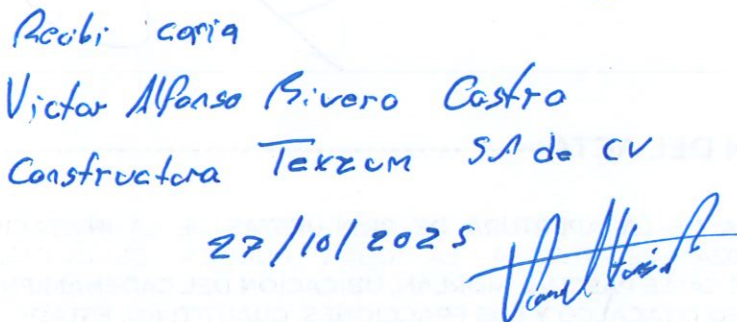 Recibi copia
Victor Alfonso Rivero Castro
Constructora Texzum SA de CV
27/10/2025